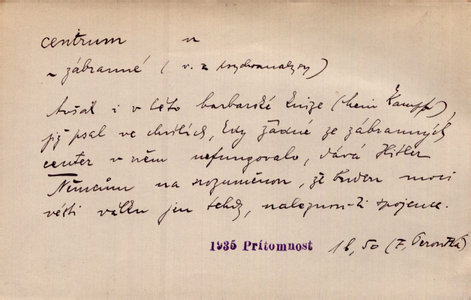 centrum n
~ zábranné (v. z psychoanalysy)
Avšak i v této barbarské knize (Mein Kampf),
již psal ve chvílích, kdy žádné ze zábranných
center v něm nefungovalo, dává Hitler
Němcům na srozuměnou, že budou moci
vésti válku jen tehdy, naleznou-li spojence.
1935 Prítomnost 16, 50 (F. Peroutka)